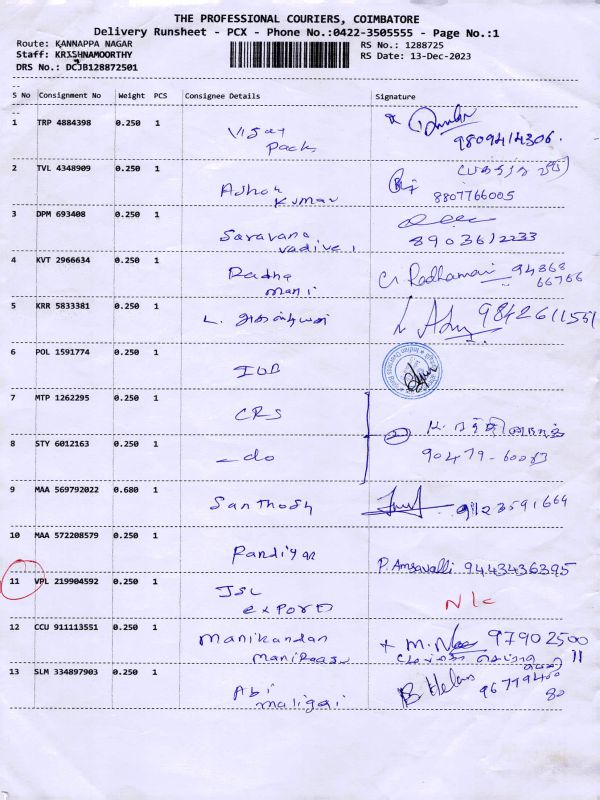 THE PROFESSIONAL COURIERS, COIMBATORE
Delivery Runsheet - PCX - Phone No.:0422-3505555 - Page No.:1
Route: KANNAPPA NAGAR RS No.: 1288725
Staff: KRISHNAMOORTHY RS Date: 13-Dec-2023
DRS No.: DCJB128872501
S No Consignment No Weight PCS Consignee Details Signature
1 TRP 4884398 0.250 1
Vijay
Pack 9809414306.
2 TVL 4348909 0.250 1
Adhav
Kumar 8807766005
3 DPM 693408 0.250 1
Saravana
vadivel 8903612233
4 KVT 2966634 0.250 1
Radha 94868
mani 66766
5 KRR 5833381 0.250 1
L. 9842611551
6 POL 1591774 0.250 1
IOB
7 MTP 1262295 0.250 1
CRS
8 STY 6012163 0.250 1
-do 90479-60013
9 MAA 569792022 0.680 1
Santhosh 9123591664
10 MAA 572208579 0.250 1
Pandiyan P. Amsavalli 9443436395
11 VPL 219904592 0.250 1
JSL
export N/c
12 CCU 911113551 0.250 1
Manikandan 97902500
11
13 SLM 334897903 0.250 1
Abi
maligai 80